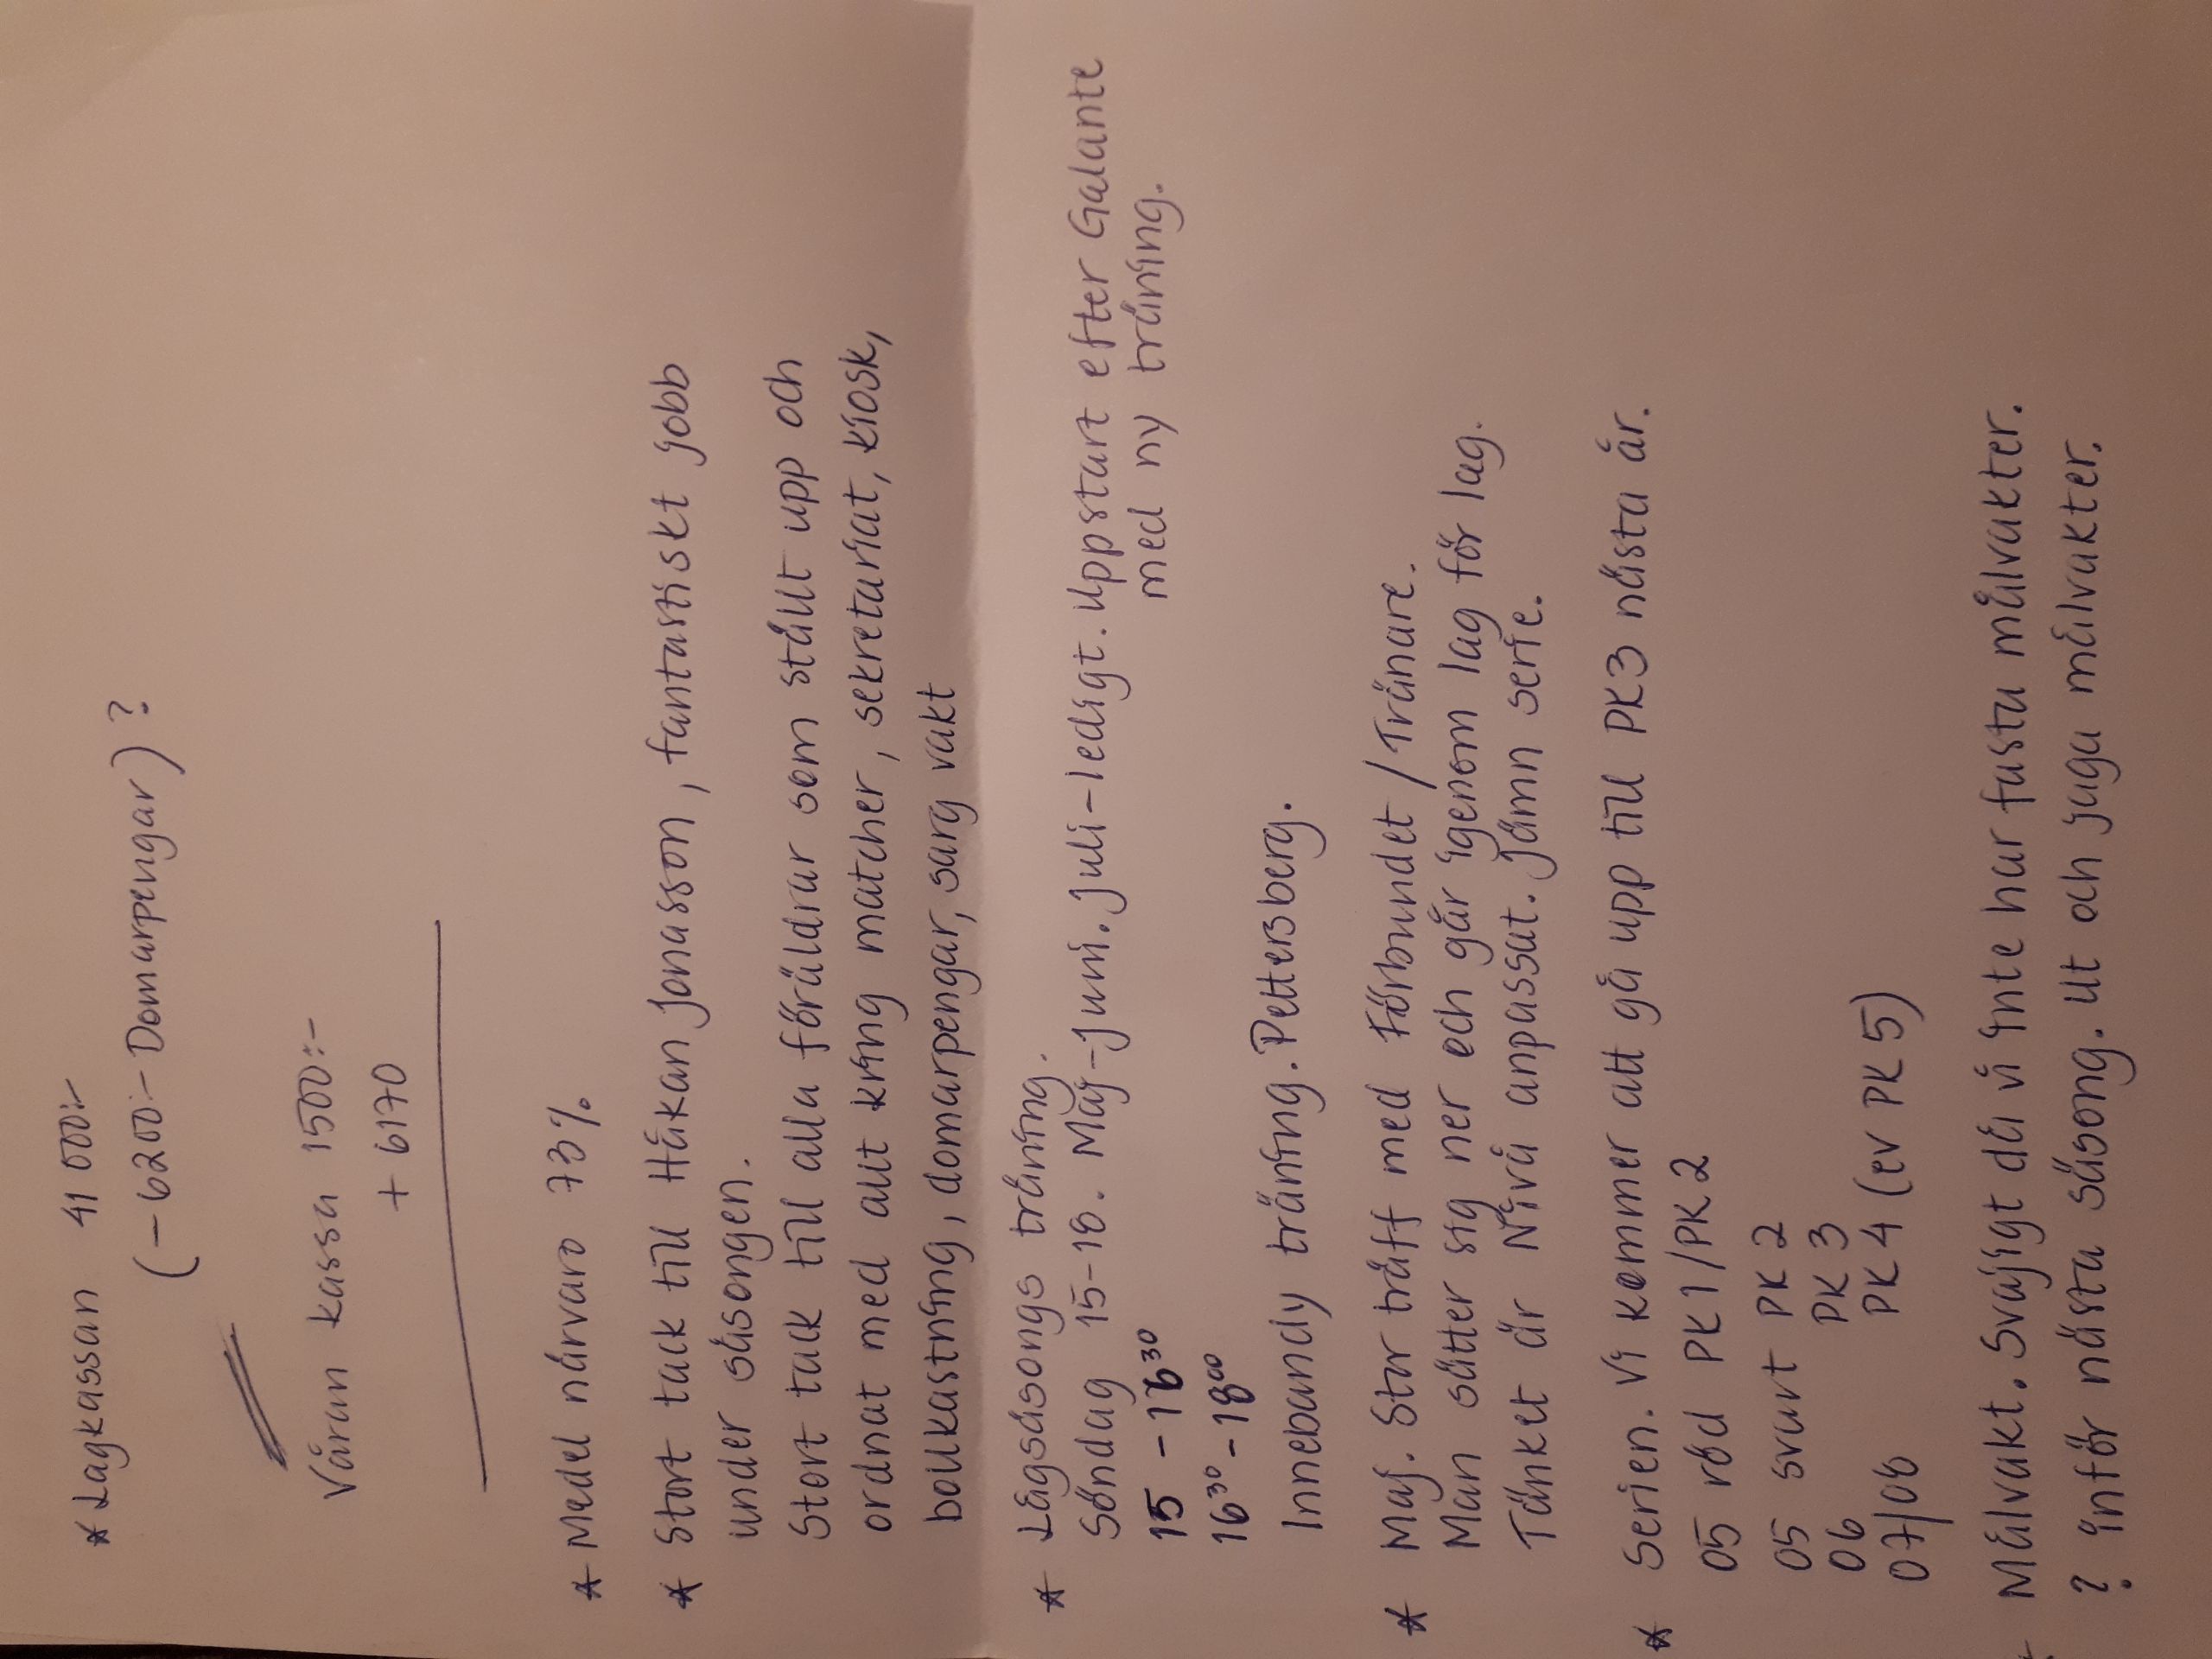 * Lagkassan 41 000:-
(-6200:- Domarpengar)?
Våran kassa 1500:-
+ 6170
* Medel närvaro 73%
* Stort tack till Håkan Jonasson, fantastiskt jobb
under säsongen.
Stort tack till alla föräldrar som ställt upp och
ordnat med allt kring matcher, sekretariat, kiosk,
bollkastning, domarpengar, sarg vakt
* Lågsäsongs träning.
Söndag 15-18. Maj-Juni. Juli-ledigt. Uppstart efter Galante
med ny träning.
15 - 16³⁰
16³⁰ - 18⁰⁰
Innebandy träning. Pettersberg.
* Maj. Stor träff med Förbundet / Tränare.
Man sätter sig ner och går igenom lag för lag.
Tänket är Nivå anpassat. Jämn serie.
* Serien. Vi kommer att gå upp till PK3 nästa år.
05 röd PK1/PK2
05 svart PK2
06 PK3
07/08 PK4 (ev PK5)
* Målvakt. Svajigt då vi inte har fasta målvakter.
? inför nästa säsong. Ut och jaga målvakter.